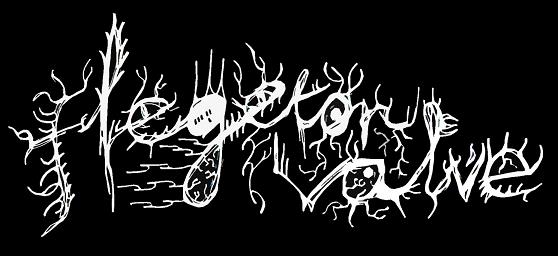 flegeton
valve